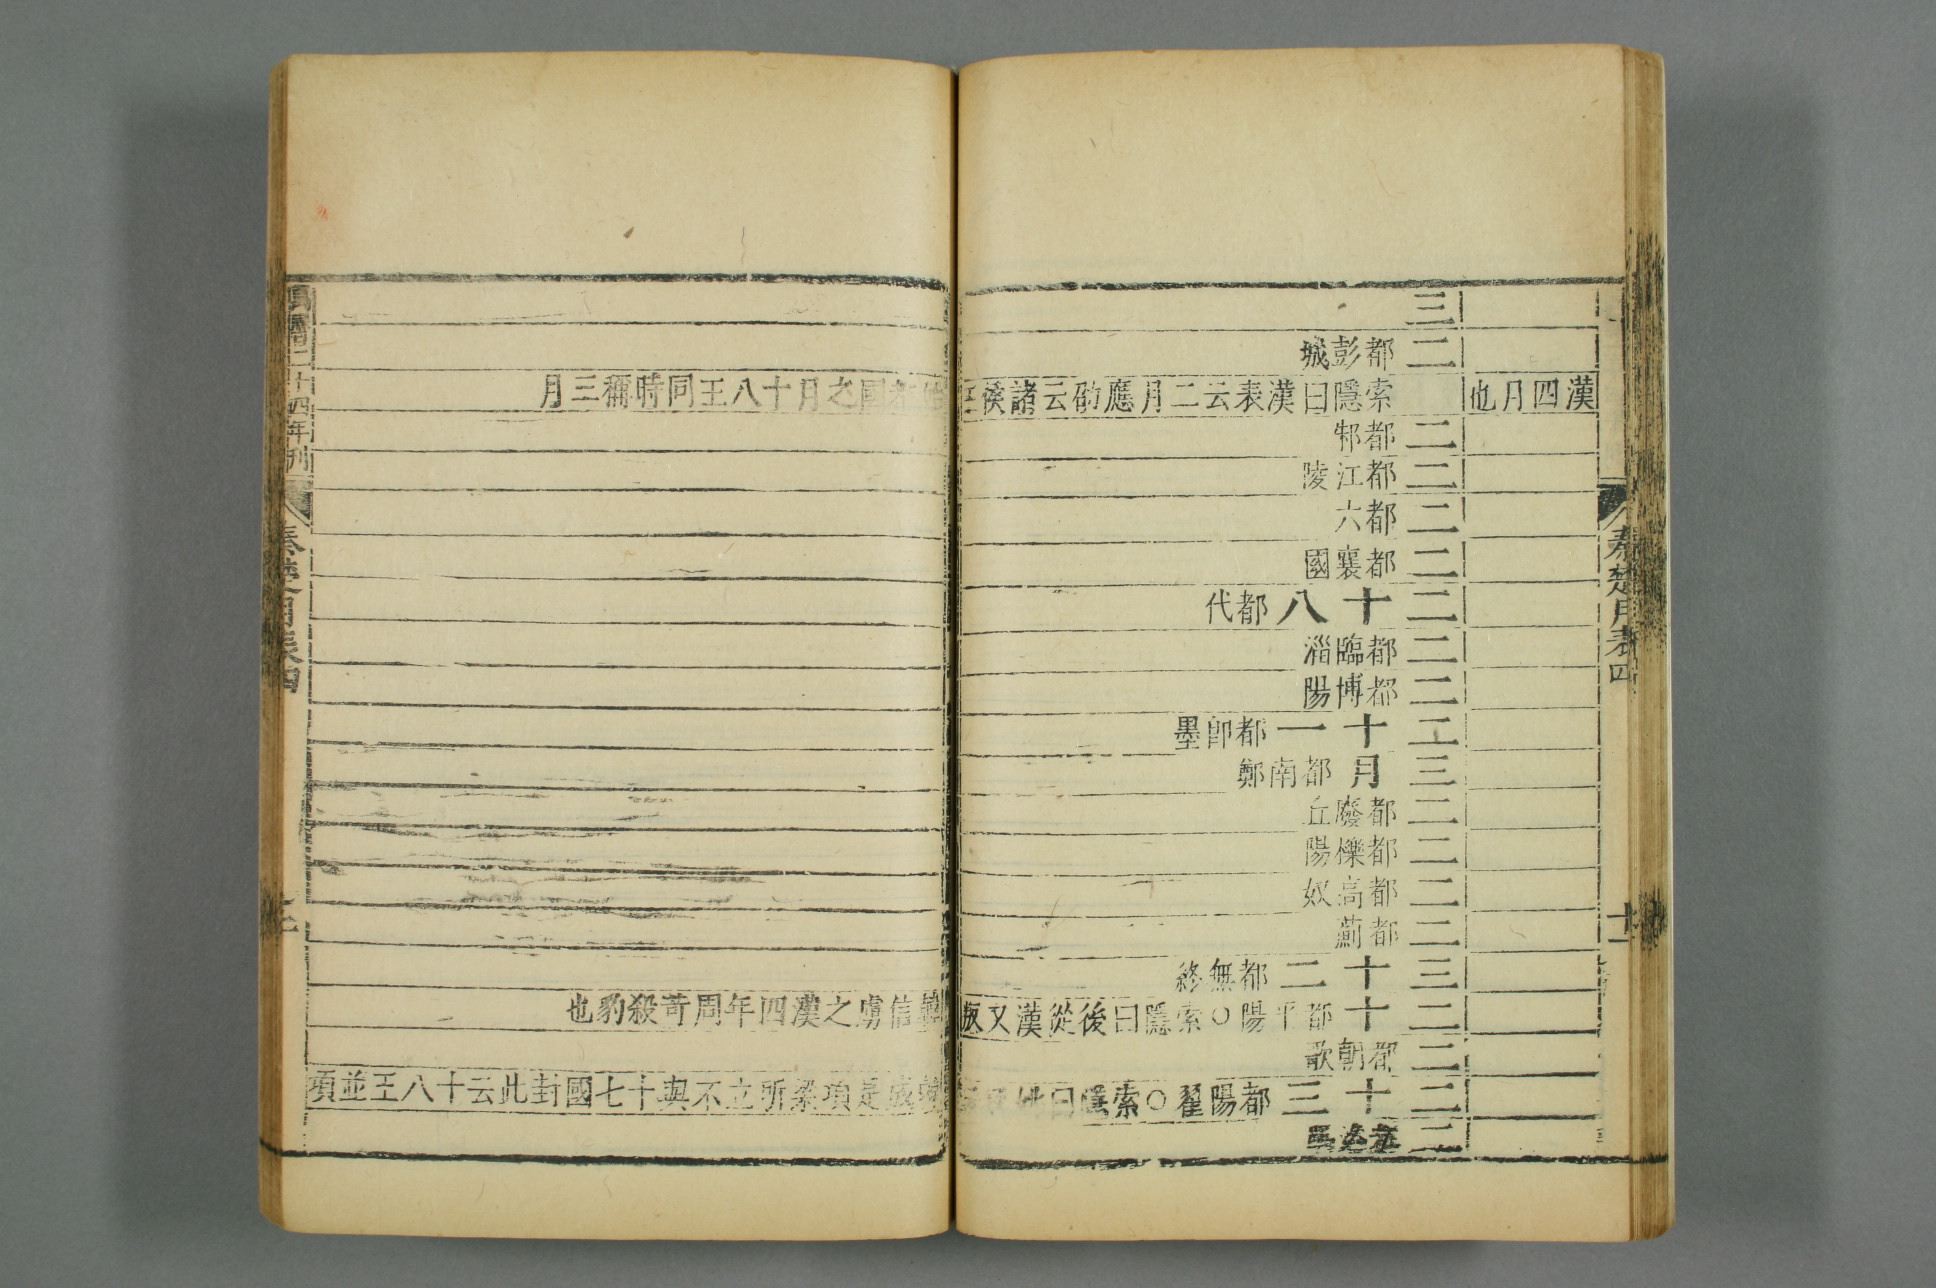 秦楚月表四
十一
漢四月也
三
二 都彭城
索隱曰漢表云二月應劭云諸侯
二 都邾
二 都江陵
二 都六
二 都襄國
二 十八 都代
二 都臨淄
二 都博陽
二 十一 都卽墨
三月 都南鄭
二 都廢丘
二 都櫟陽
二 都高奴
二 都薊
三 十二 都無終
二 十 都平陽○索隱曰後從漢又叛
二 都朝歌
二 十三 都陽翟○索隱曰
二
國之月十八王同時稱三月
韓信虜之漢四年周苛殺豹也
成是項梁所立不與十七國封此云十八王並項
二十四年刊
秦楚月表四